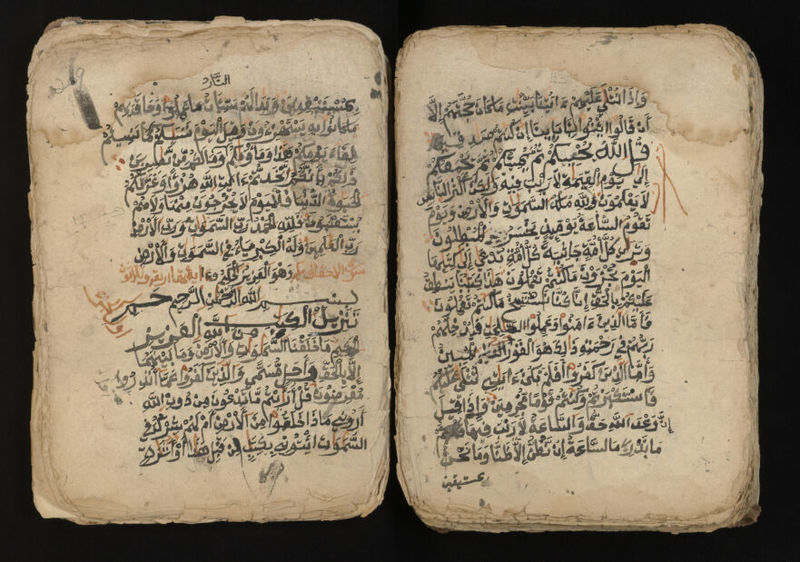 وَإِذَا تُتْلَى عَلَيْهِمْ ءَايَتُنَا بَيِّنَتٍ مَا كَانَ حُجَّتَهُمْ إِلَّا
أَن قَالُوا ايتُوا بِئَابَائِنَا إِن كُنتُمْ صَدِقِينَ
قُلِ اللَّهُ يُحْيِيكُمْ ثُمَّ يُمِيتُكُمْ ثُمَّ يَجْمَعُكُمْ
إِلَى يَوْمِ الْقِيَمَةِ لَا رَيْبَ فِيهِ وَلَكِنَّ أَكْثَرَ النَّاسِ
لَا يَعْلَمُونَ وَلِلَّهِ مُلْكُ السَّمَوَتِ وَالْأَرْضِ وَيَوْمَ
تَقُومُ السَّاعَةُ يَوْمَئِذٍ يَخْسَرُ الْمُبْطِلُونَ
وَتَرَى كُلَّ أُمَّةٍ جَاثِيَةً كُلُّ أُمَّةٍ تُدْعَى إِلَى كِتَبِهَا
الْيَوْمَ تُجْزَوْنَ مَا كُنتُمْ تَعْمَلُونَ هَذَا كِتَبُنَا يَنطِقُ
عَلَيْكُم بِالْحَقِّ إِنَّا كُنَّا نَسْتَنسِخُ مَا كُنتُمْ تَعْمَلُونَ
فَأَمَّا الَّذِينَ ءَامَنُوا وَعَمِلُوا الصَّلِحَتِ فَيُدْخِلُهُمْ
رَبُّهُمْ فِي رَحْمَتِهِ ذَلِكَ هُوَ الْفَوْزُ الْمُبِينُ
وَأَمَّا الَّذِينَ كَفَرُوا أَفَلَمْ تَكُنْ ءَايَتِي تُتْلَى عَلَيْكُمْ
فَاسْتَكْبَرْتُمْ وَكُنتُمْ قَوْمًا مُّجْرِمِينَ وَإِذَا قِيلَ
إِنَّ وَعْدَ اللَّهِ حَقٌّ وَالسَّاعَةُ لَا رَيْبَ فِيهَا قُلْتُم
مَا نَدْرِي مَا السَّاعَةُ إِن نَّظُنُّ إِلَّا ظَنًّا وَمَا نَحْنُ
بمستيقنين
النَّارُ
بِمُسْتَيْقِنِينَ وَبَدَا لَهُمْ سَيِّئَاتُ مَا عَمِلُوا وَحَاقَ بِهِم
مَّا كَانُوا بِهِ يَسْتَهْزِءُونَ وَقِيلَ الْيَوْمَ نَنسَيكُمْ كَمَا نَسِيتُمْ
لِقَاءَ يَوْمِكُمْ هَذَا وَمَأْوَيكُمْ وَمَا لَكُم مِّن نَّصِرِينَ
ذَلِكُم بِأَنَّكُمُ اتَّخَذْتُمْ ءَايَتِ اللَّهِ هُزُؤًا وَغَرَّتْكُمُ
الْحَيَوةُ الدُّنْيَا فَالْيَوْمَ لَا يُخْرَجُونَ مِنْهَا وَلَا هُمْ
يُسْتَعْتَبُونَ فَلِلَّهِ الْحَمْدُ رَبِّ السَّمَوَتِ وَرَبِّ الْأَرْضِ
رَبِّ الْعَلَمِينَ وَلَهُ الْكِبْرِيَاءُ فِي السَّمَوَتِ وَالْأَرْضِ
وَهُوَ الْعَزِيزُ الْحَكِيمُ
بسم الله الرحمن الرحيم حم
تَنزِيلُ الْكِتَبِ مِنَ اللَّهِ الْعَزِيزِ
الْحَكِيمِ مَا خَلَقْنَا السَّمَوَتِ وَالْأَرْضَ وَمَا بَيْنَهُمَا
إِلَّا بِالْحَقِّ وَأَجَلٍ مُّسَمًّى وَالَّذِينَ كَفَرُوا عَمَّا أُنذِرُوا
مُعْرِضُونَ قُلْ أَرَءَيْتُم مَّا تَدْعُونَ مِن دُونِ اللَّهِ
أَرُونِي مَاذَا خَلَقُوا مِنَ الْأَرْضِ أَمْ لَهُمْ شِرْكٌ فِي
السَّمَوَتِ ايتُونِي بِكِتَبٍ مِّن قَبْلِ هَذَا أَوْ أَثَرَةٍ